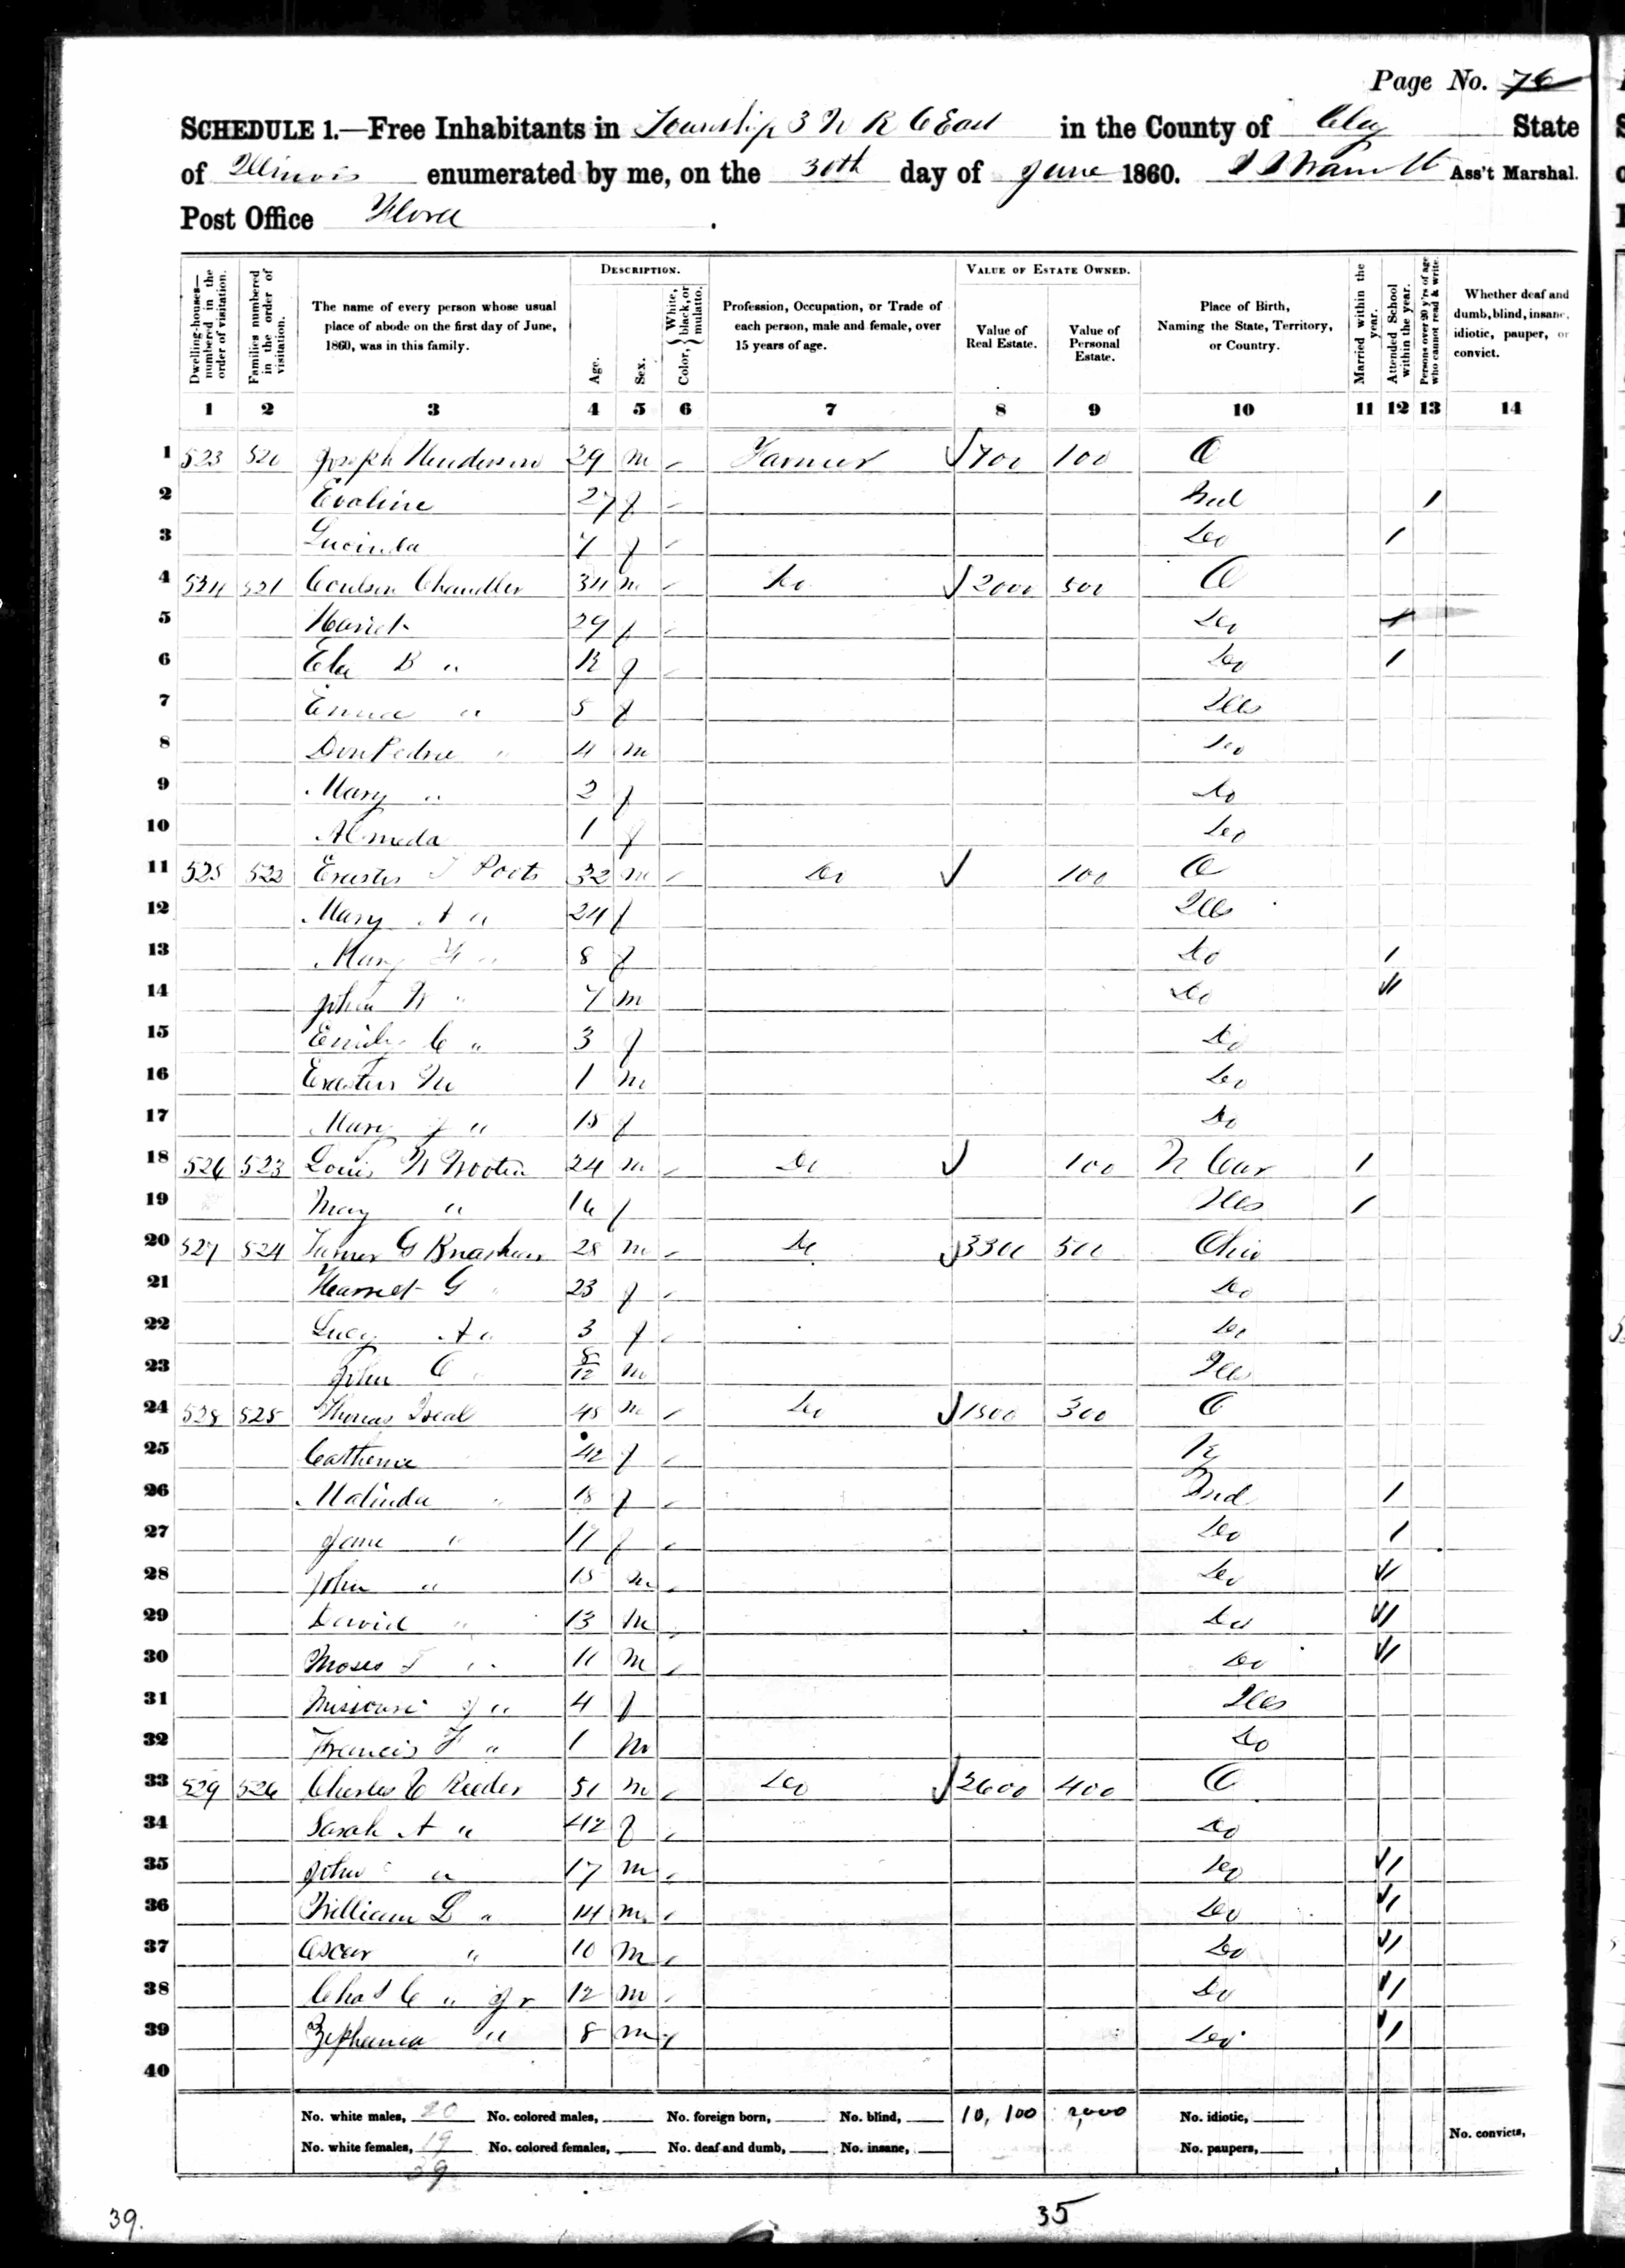 Page No. 76
SCHEDULE 1.—Free Inhabitants in Township 3 N R 6 East in the County of Clay State
of Illinois enumerated by me, on the 30th day of June 1860. Ass't Marshal.
Post Office Flora
DESCRIPTION. VALUE OF ESTATE OWNED.
Dwelling-houses—numbered in the order of visitation. Families numbered in the order of visitation. The name of every person whose usual place of abode on the first day of June, 1860, was in this family. Age. Sex. Color, { White, black, or mulatto. Profession, Occupation, or Trade of each person, male and female, over 15 years of age. Value of Real Estate. Value of Personal Estate. Place of Birth, Naming the State, Territory, or Country. Married within the year. Attended School within the year. Persons over 20 y'rs of age who cannot read & write. Whether deaf and dumb, blind, insane, idiotic, pauper, or convict.
1 2 3 4 5 6 7 8 9 10 11 12 13 14
1 523 520 Joseph Henderson 29 m / Farmer 700 100 O
2 Evaline 27 f / Ind /
3 Lucinda 7 f / Do /
4 524 521 Coulson Chandler 34 m / Do 2000 500 O
5 Hariet 29 f / Do
6 B " 12 f / Do /
7 Emma " 5 f Ills
8 Don Pedro " 4 m Do
9 Mary " 2 f Do
10 Almeda 1 f Do
11 525 522 Erastus T 32 m / Do 100 O
12 Mary A " 24 f Ills
13 Mary " 8 f Do /
14 John W " 7 m Do
15 Emily C " 3 f Do
16 Erastus M 1 m Do
17 Mary J " 15 f Do
18 526 523 Louis W Wooten 24 m / Do 100 N Car /
19 Mary " 16 f Ills /
20 527 524 Turner G Brashear 28 m / Do 3300 500 Ohio
21 Harriet G " 23 f / Do
22 Lucy A " 3 f / Do
23 John C " 8/12 m Ills
24 528 525 Thomas 45 m / Do 1500 300 O
25 Catherine 42 f / Ky
26 Malinda " 18 f / Ind /
27 Jane " 17 f / Do /
28 John " 15 m / Do
29 David " 13 m / Do
30 Moses F " 11 m / Do
31 Missouri J " 4 f Ills
32 Francis F " 1 m Do
33 529 526 Charles C Reeder 51 m / Do 2600 400 O
34 Sarah A " 42 f / Do
35 John " 17 m / Do
36 William L " 14 m / Do
37 Oscar " 10 m / Do
38 Chas C " Jr 12 m / Do
39 Zephania " 8 m / Do
40
No. white males, 20 No. colored males, No. foreign born, No. blind, 10,100 2,000 No. idiotic,
No. white females, 19 No. colored females, No. deaf and dumb, No. insane, No. paupers, No. convicts,
39
39. 35